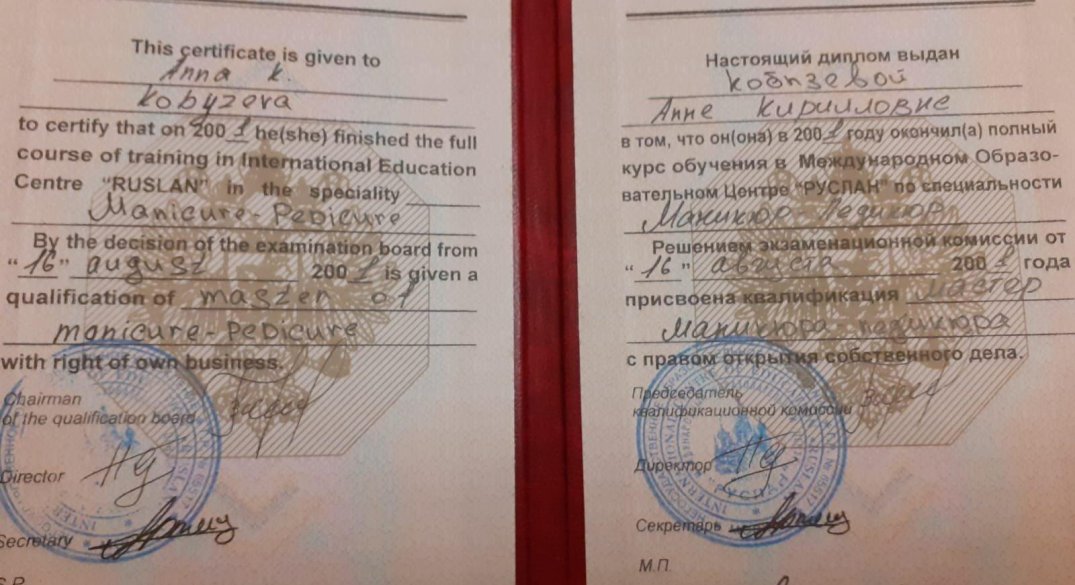 This certificate is given to
Anna K.
Kobyzeva
to certify that on 2001 he(she) finished the full
course of training in International Education
Centre "RUSLAN" in the speciality
Manicure-Pedicure
By the decision of the examination board from
"16" august 2001 is given a
qualification of master of
manicure-Pedicure
with right of own business.
Chairman
of the qualification board
Director
Secretary
Настоящий диплом выдан
Кобызевой
Анне Кирилловне
в том, что он(она) в 2001 году окончил(а) полный
курс обучения в Международном Образо-
вательном Центре "РУСЛАН" по специальности
Маникюр-Педикюр
Решением экзаменационной комиссии от
"16" августа 2001 года
присвоена квалификация мастер
маникюра-педикюра
с правом открытия собственного дела.
Председатель
квалификационной комиссии
Директор
Секретарь
М.П.